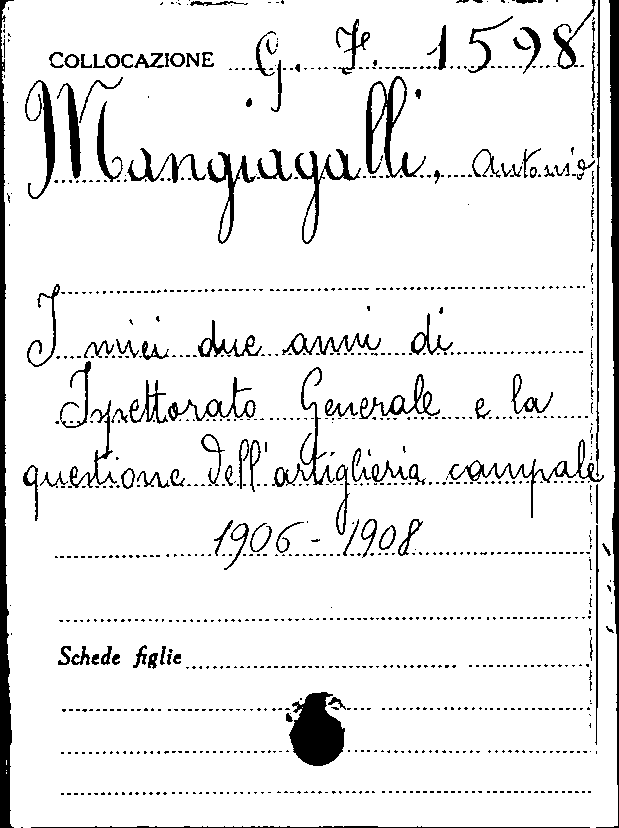 COLLOCAZIONE G. F. 1598
Mangiagalli, Antonio
I miei due anni di
Ispettorato Generale e la
questione dell'artiglieria campale
1906 - 1908
Schede figlie